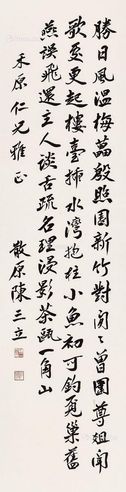 勝日風温梅萼殷照園新竹對閑〻曾園尊俎聞
歌至更起樓臺插水灣抱柱小魚初可釣覓巢舊
燕誤飛還主人談舌疏名理漫影茶甌一角山
禾原仁兄雅正
散原陳三立